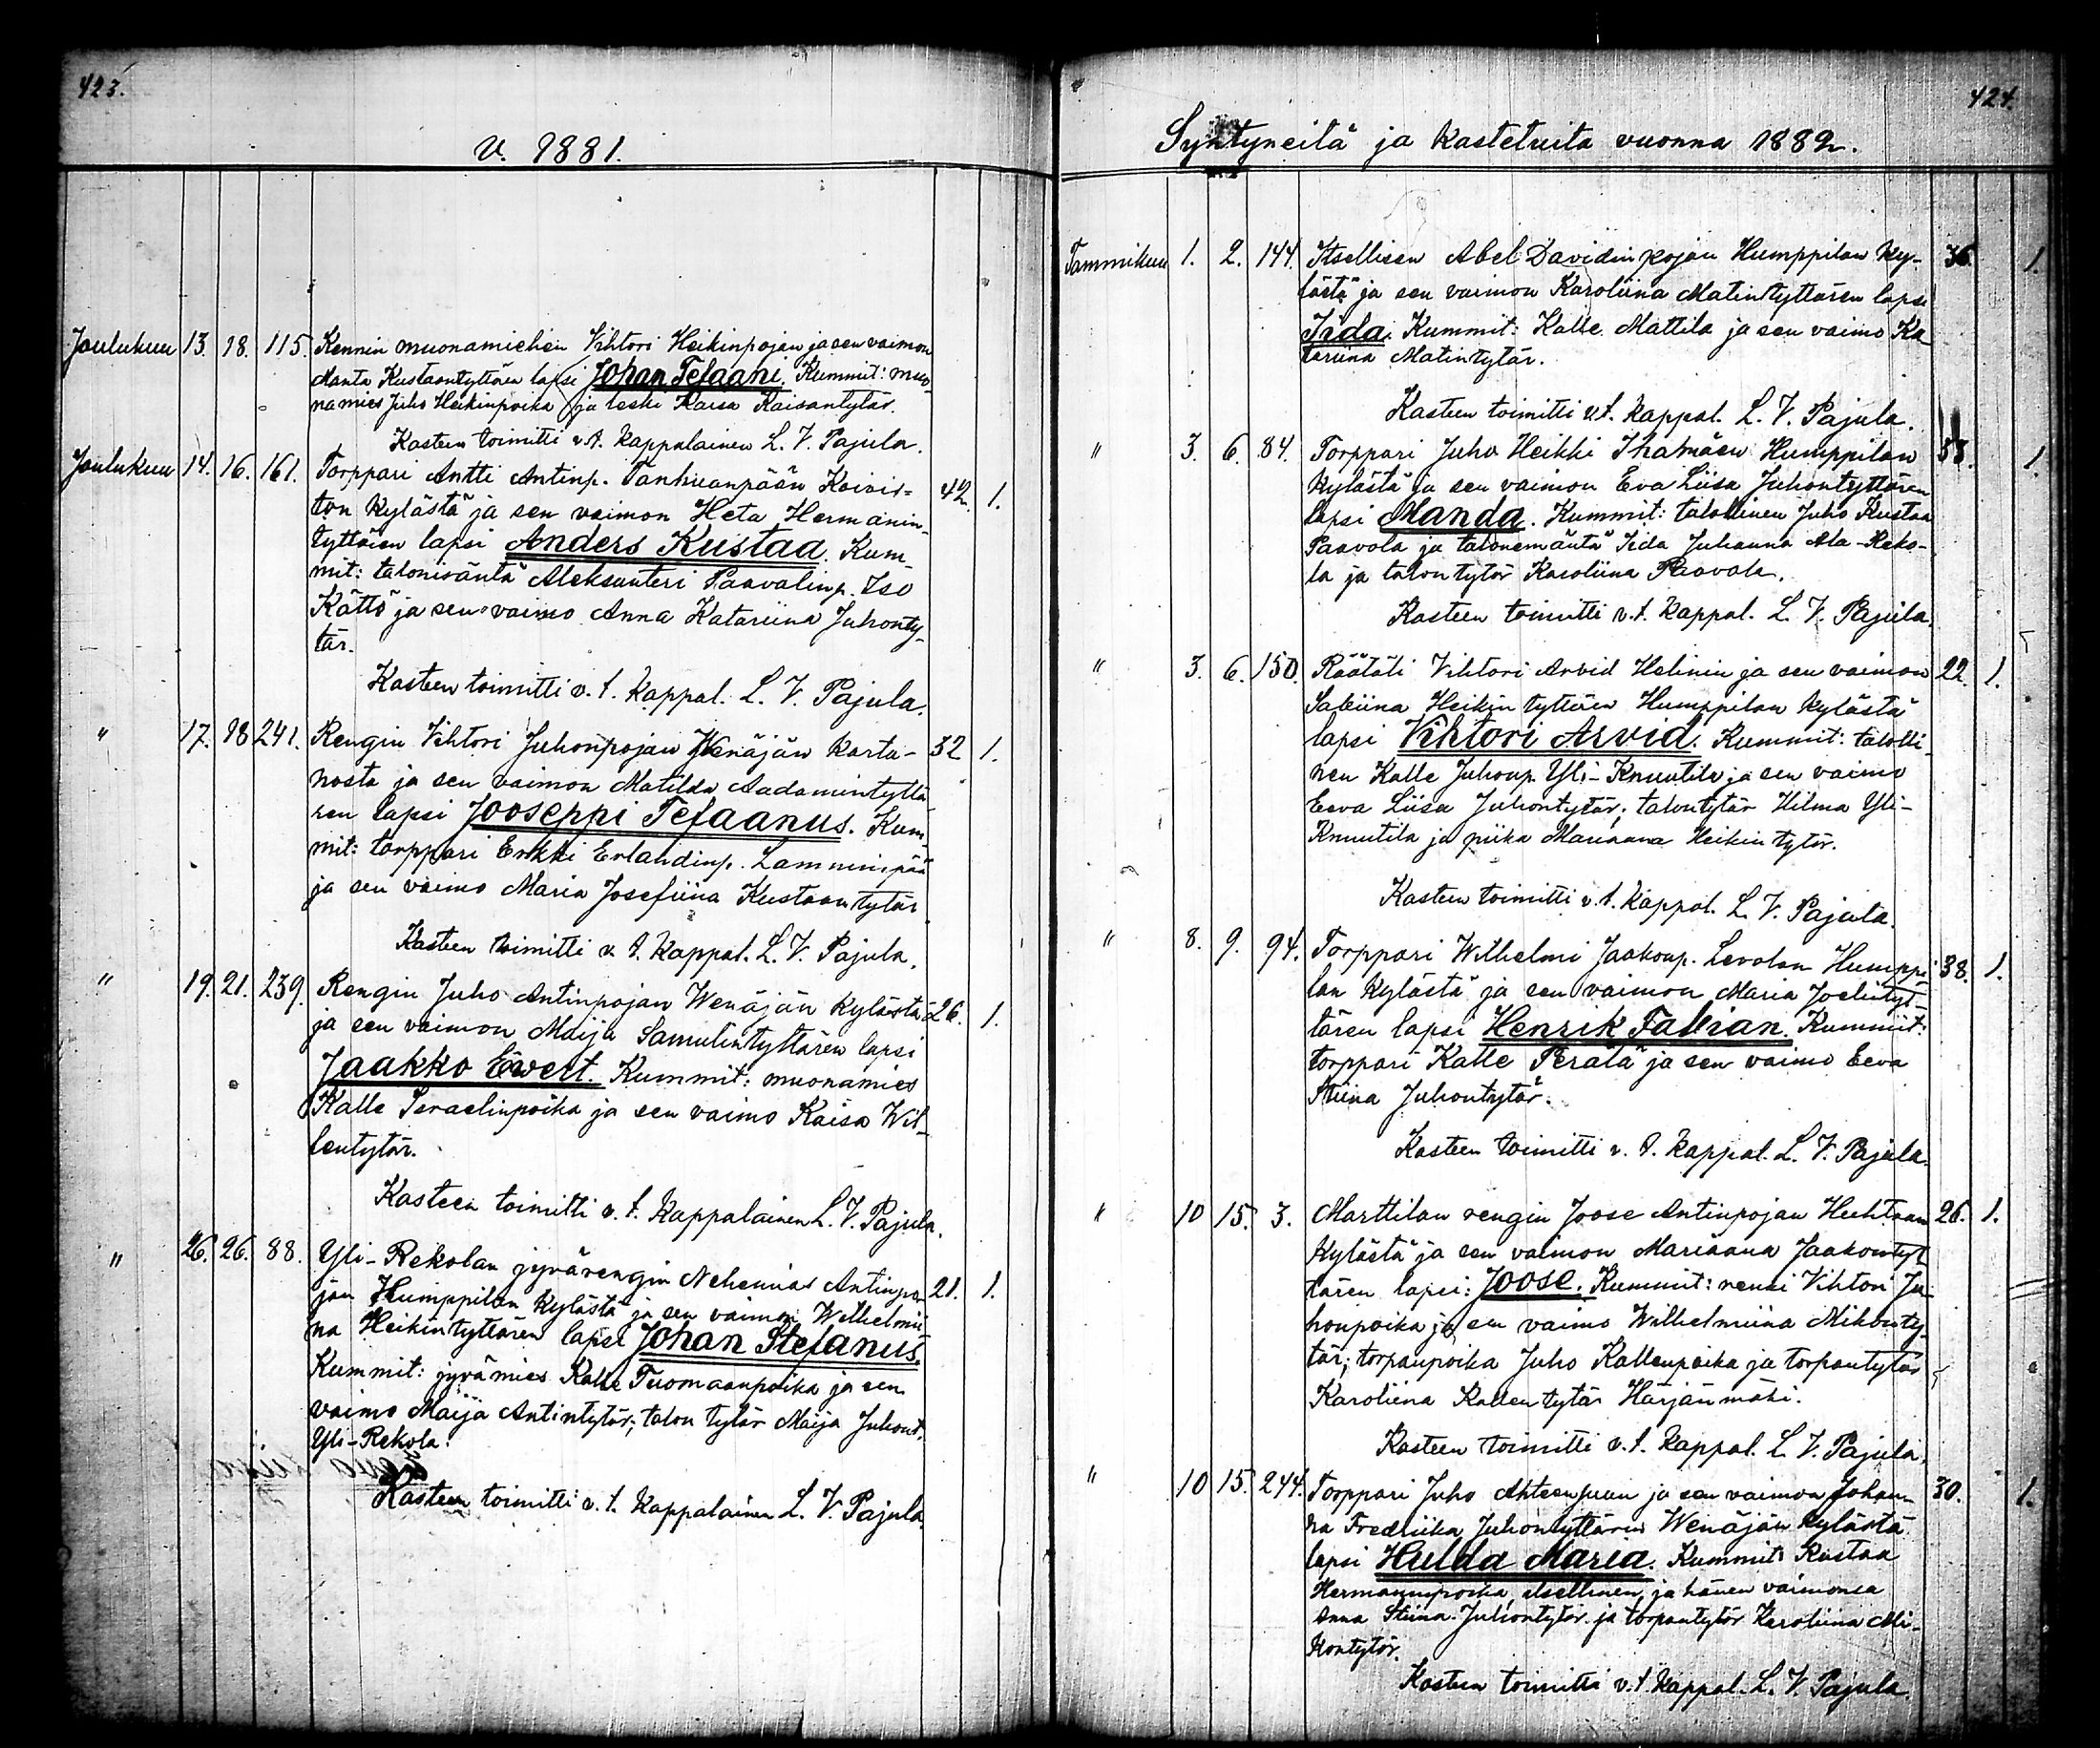 423.
v. 1881.
Joulukuu 13. 18. 115. Kennin muonamiehen Vihtori Heikinpojan ja sen vaimon
Manta Kustaantyttären lapsi Johan Tefaani. Kummit: muo-
namies Juho Heikinpoika ja leski Kaisa Kaisantytär.
Kasteen toimitti v. t. kappalainen L. V. Pajula.
Joulukuu 14. 16. 161. Torppari Antti Antinp. Tanhuanpään Koivis-
ton kylästä ja sen vaimon Heta Hermanin- 42. 1.
tyttären lapsi Anders Kustaa. Kum-
mit: talonisäntä Aleksanteri Paavalinp. Iso
Kättö ja sen vaimo Anna Katariina Juhonty-
tär.
Kasteen toimitti v. t. kappal. L. V. Pajula.
" 17. 18 241. Rengin Vihtori Juhonpojan Wenäjän karta- 32 1.
nosta ja sen vaimon Matilda Aadamintyttä-
ren lapsi Jooseppi Tefaanus. Kum-
mit: torppari Erkki Erlandinp. Lamminpää
ja sen vaimo Maria Josefiina Kustaantytär
Kasteen toimitti v. t. kappal. L. V. Pajula.
" 19. 21. 239. Rengin Juho Antinpojan Wenäjän kylästä 26. 1.
ja sen vaimon Maija Samulintyttären lapsi
Jaakko Ewert. Kummit: muonamies
Kalle Israelinpoika ja sen vaimo Kaisa Wil-
lentytär.
Kasteen toimitti v. t. kappalainen L. V. Pajula.
" 26. 26. 88. Yli-Rekolan jyvärengin Nehemias Antinpo- 21. 1.
jan Humppilan kylästä ja sen vaimon Wilhelmii-
na Heikintyttären lapsi Johan Stefanus.
Kummit: jyvämies Kalle Tuomaanpoika ja sen
vaimo Maija Antintytär; talon tytär Maija Juhont.
Yli-Rekola.
Kasteen toimitti v. t. kappalainen L. V. Pajula.
424.
Syntyneitä ja kastetuita vuonna 1882.
Tammikuu 1. 2. 144. Itsellisen Abel Davidinpojan Humppilan ky- 36. 1.
lästä ja sen vaimon Karoliina Matintyttären lapsi
Iida. Kummit: Kalle Mattila ja sen vaimo Ka
tariina Matintytär.
Kasteen toimitti v.t. kappal. L. V. Pajula.
" 3. 6. 84. Torppari Juho Heikki Ihamäen Humppilan 33. 1.
kylästä ja sen vaimon Eva Liisa Juhontyttären
lapsi Manda. Kummit: talollinen Juho Kustaa
Paavola ja talonemäntä Iida Juhanna Ala-Reko-
la ja talontytär Karoliina Paavola.
Kasteen toimitti v. t. kappal. L. V. Pajula.
" 3. 6. 150. Räätäli Vihtori Arvid Helinin ja sen vaimon 22. 1.
Sabiina Heikintyttären Humppilan kylästä
lapsi Vihtori Arvid. Kummit: talolli-
nen Kalle Juhonp. Yli-Knuutila ja sen vaimo
Eeva Liisa Juhontytär; talontytär Hilma Yli-
Knuutila ja piika Mariaana Heikintytär.
Kasteen toimitti v. t. kappal. L. V. Pajula.
" 8. 9. 94. Torppari Wilhelmi Jaakonp. Levolan Humppi- 38. 1.
lan kylästä ja sen vaimon Maria Joelintyt-
tären lapsi Henrik Fabian. Kummit:
torppari Kalle Perälä ja sen vaimo Eeva
Stiina Juhontytär.
Kasteen toimitti v. t. kappal. L. V. Pajula.
" 10 15. 3. Marttilan rengin Joose Antinpojan Huhtaan 26. 1.
kylästä ja sen vaimon Mariaana Jaakontyt
tären lapsi: Joose. Kummit: renki Vihtori Ju-
honpoika ja sen vaimo Wilhelmiina Mikonty-
tär; torpanpoika Juho Kallenpoika ja torpantytär
Karoliina Kallentytär Härjänmäki.
Kasteen toimitti v. t. kappal. L. V. Pajula.
" 10 15. 244. Torppari Juho Ahteensuun ja sen vaimon Johan- 30. 1.
na Fredriika Juhontyttären Wenäjän kylästä
lapsi Hulda Maria. Kummit: Kustaa
Hermanninpoika, itsellinen, ja hänen vaimonsa
Anna Stiina Juhontytär ja torpantytär Karoliina Mi-
kontytär.
Kasteen toimitti v. t. kappal. L. V. Pajula.